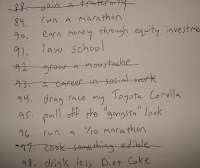 88. join a fraternity
89. run a marathon
90. earn money through equity investme
91. law school
92. grow a moustache
93. a career in social work
94. drag race my Toyota Corolla
95. pull off the "gangsta" look
96. run a 1/10 marathon
97. cook something edible
98. drink less Diet Coke